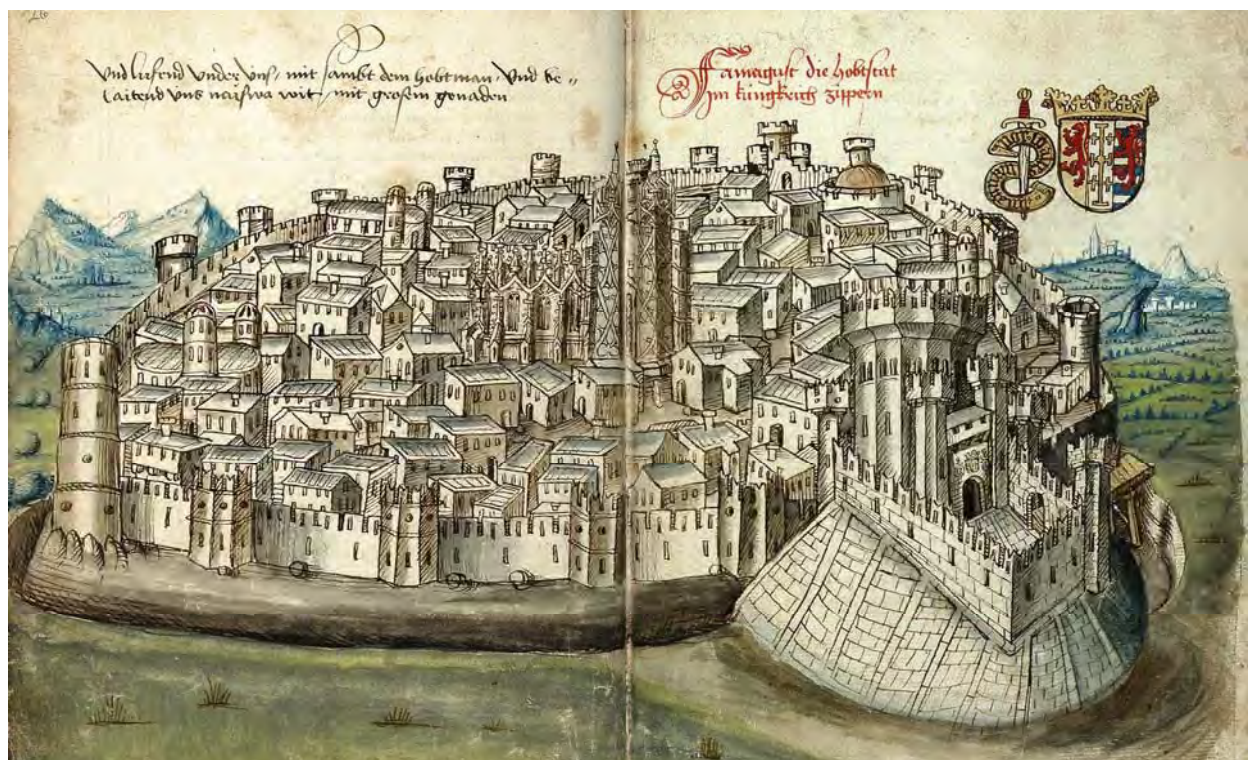 und liesend under uns, mit sambt dem hobtman, und be„
laitend uns
wit, mit grosem genaden
Famagust die hobstat
Im kungkreich zippern